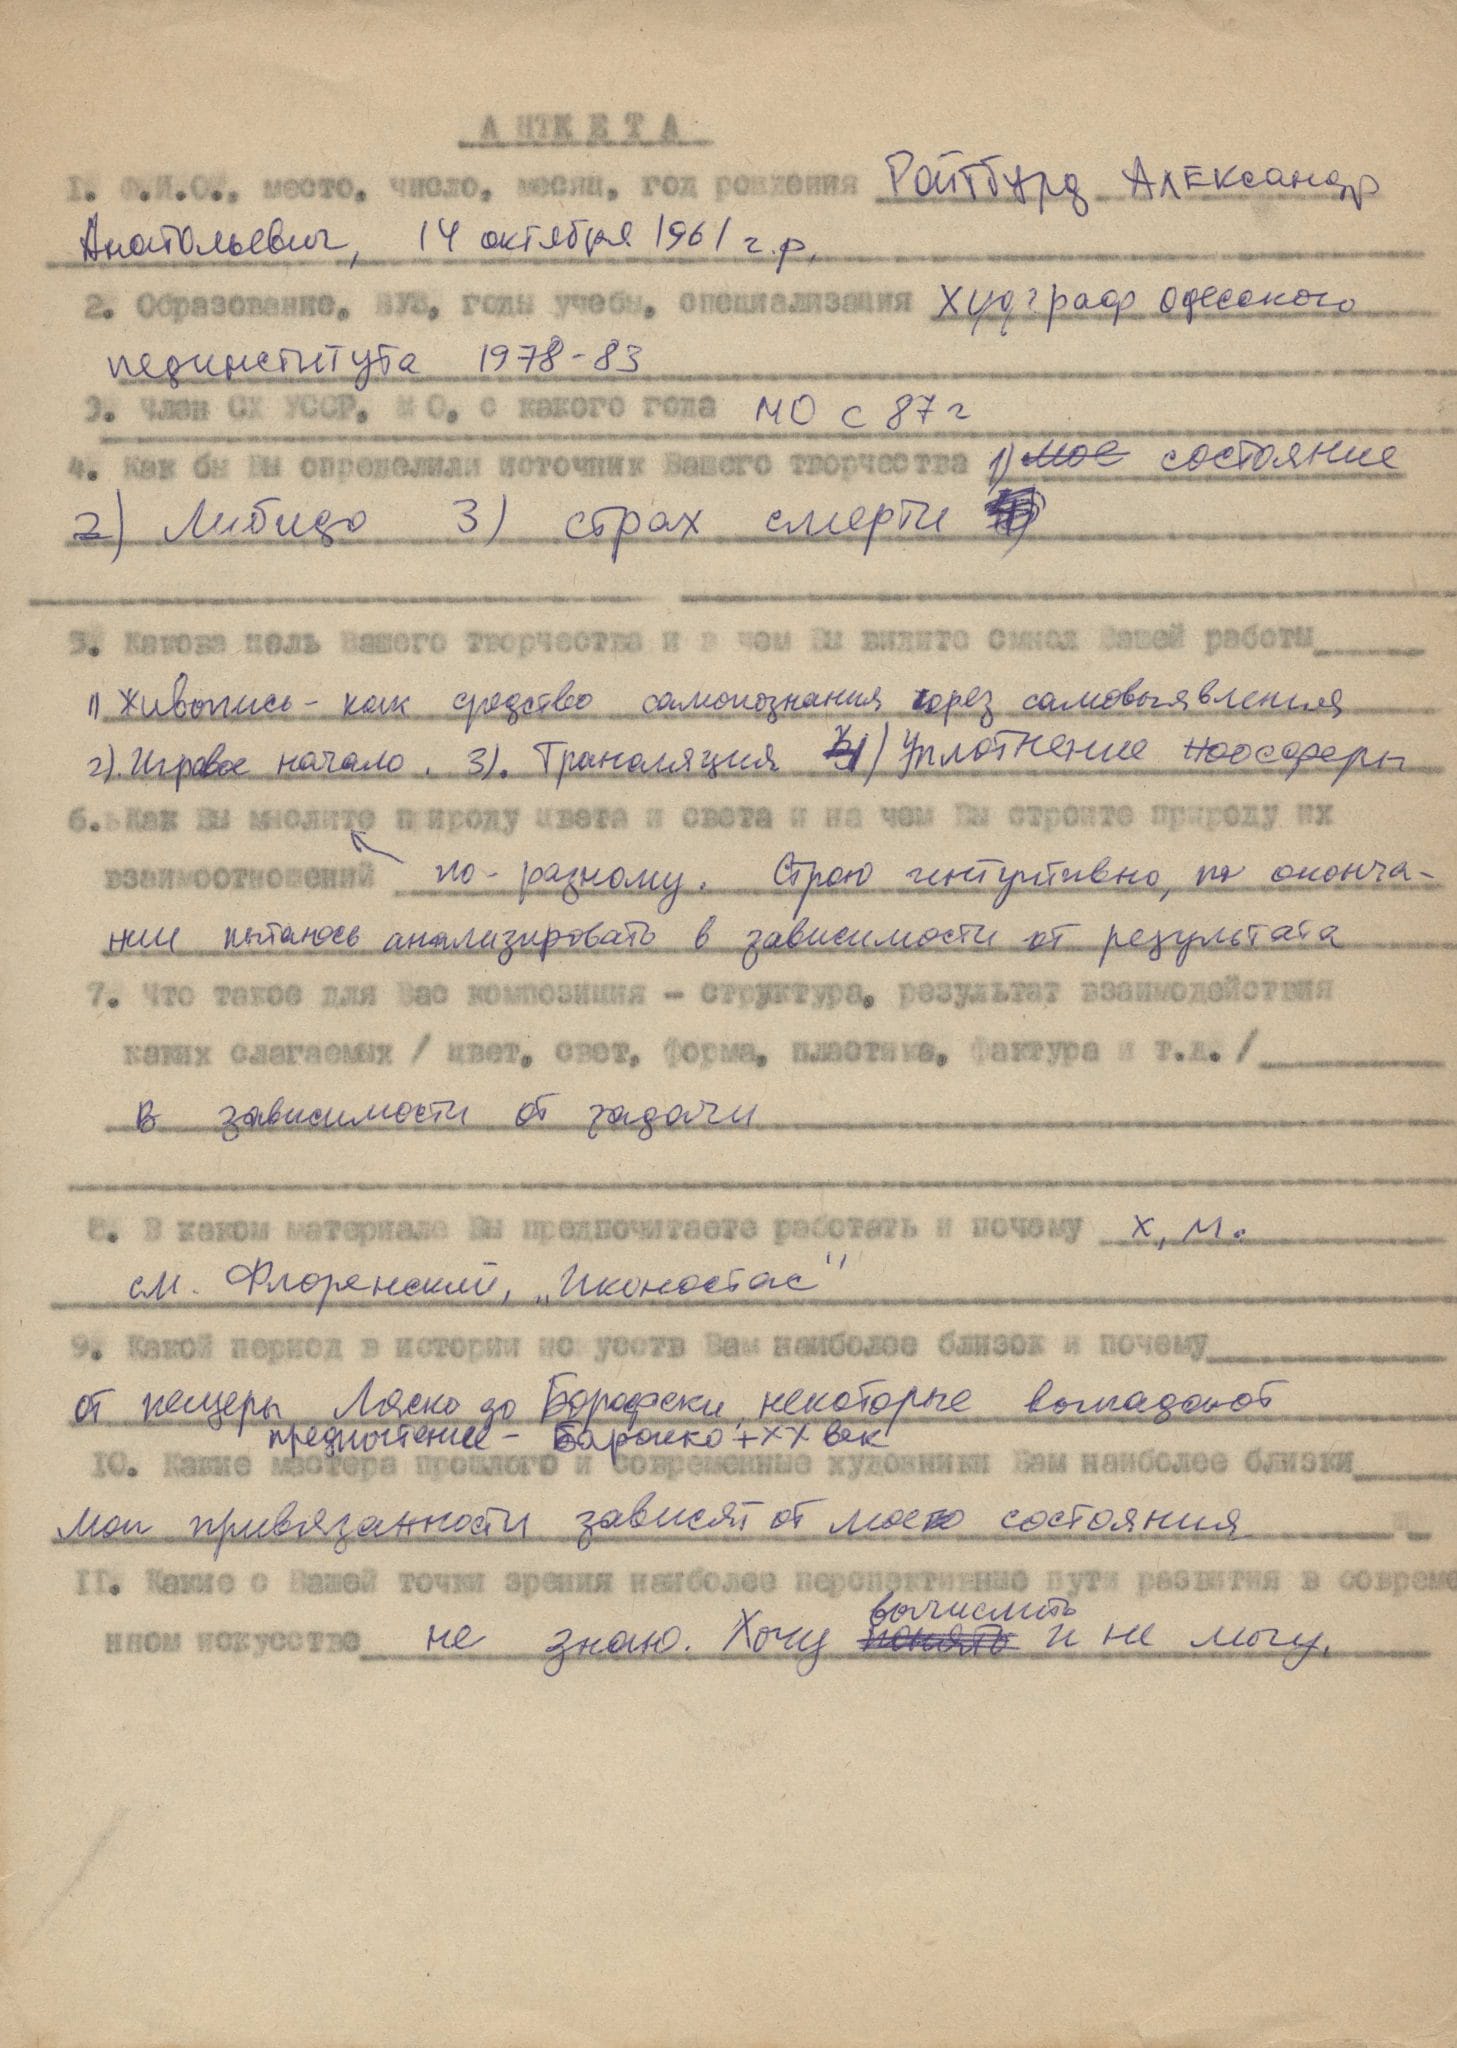 АНКЕТА
1. Ф.И.О., место, число, месяц, год рождения Ройтбурд Александр
Анатольевич, 14 октября 1961 г.р.
2. Образование, ВУЗ, годы учебы, специализация Худграф Одесского
пединститута 1978-83
3. Член СХ УССР, МО, с какого года МО с 87 г
4. Как бы Вы определили источник Вашего творчества 1) мое состояние
2) Либидо 3) страх смерти
5. Какова цель Вашего творчества и в чем Вы видите смысл Вашей работы
1) Живопись - как средство самопознания через самовыявления
2). Игровое начало. 3). Трансляция 4) Уплотнение ноосферы
6. Как Вы мыслите природу цвета и света и на чем Вы строите природу их
взаимоотношений по-разному. Строю интуитивно, по оконча-
нии пытаюсь анализировать в зависимости от результата
7. Что такое для Вас композиция - структура, результат взаимодействия
каких слагаемых / цвет, свет, форма, пластика, фактура и т.д. /
в зависимости от задачи
8. В каком материале Вы предпочитаете работать и почему х, м.
см. Флоренский, „Иконостас"
9. Какой период в истории искусств Вам наиболее близок и почему
от пещеры Ляско до Борофски, некоторые выпадают
предпочтение - Барокко + XX век
10. Какие мастера прошлого и современные художники Вам наиболее близки
мои привязанности зависят от моего состояния
11. Какие с Вашей точки зрения наиболее перспективные пути развития в совреме
нном искусстве не знаю. Хочу понять вычислить и не могу.